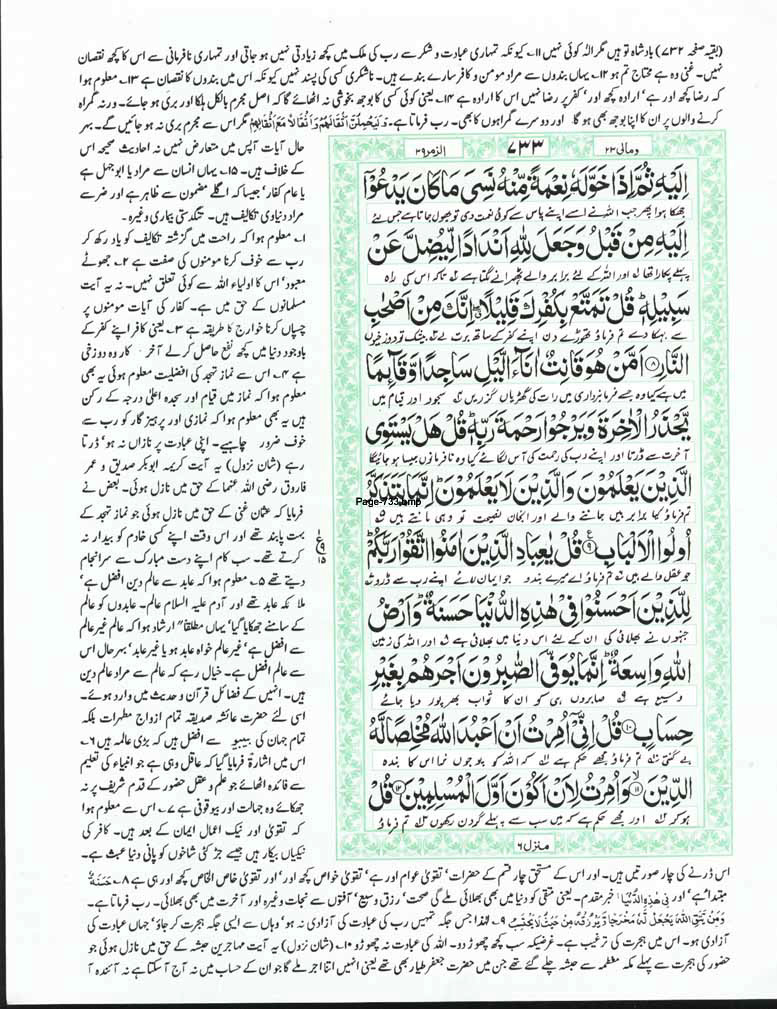 (بقیہ صفحہ ۷۳۲) بادشاہ تو ہیں مگر الٰہ کوئی نہیں ۱۱؎ کیونکہ تمہاری عبادت و شکر سے رب کی ملک میں کچھ زیادتی نہیں ہو جاتی اور تمہاری نافرمانی سے اس کا کچھ نقصان
نہیں۔ غنی وہ ہے محتاج تم ہو ۱۲؎ یہاں بندوں سے مراد مومن و کافر سارے بندے ہیں۔ ناشکری کسی کی پسند نہیں کیونکہ اس میں بندوں کا نقصان ہے ۱۳؎ معلوم ہوا
کہ رضا کچھ اور ہے' ارادہ کچھ اور' کفر پر رضا نہیں اس کا ارادہ ہے ۱۴؎ یعنی کوئی کسی کا بوجھ بخوشی نہ اٹھائے گا کہ اصل مجرم بالکل ہلکا اور بری ہو جائے۔ ورنہ گمراہ
کرنے والوں پر ان کا اپنا بوجھ بھی ہو گا اور دوسرے گمراہوں کا بھی۔ رب فرماتا ہے۔ وَلَیَحْمِلُنَّ اَثْقَالَهُمْ وَاَثْقَالًا مَّعَ اَثْقَالِهِمْ مگر اس سے مجرم بری نہ ہو جائیں گے۔ بہر
حال آیات آپس میں متعارض نہیں نہ احادیث صحیحہ اس
کے خلاف ہیں۔ ۱۵؎ یہاں انسان سے مراد یا ابوجہل ہے
یا عام کفار' جیسا کہ اگلے مضمون سے ظاہر ہے اور ضر سے
مراد دنیاوی تکالیف ہیں۔ تنگدستی بیماری وغیرہ۔
۱؎ معلوم ہوا کہ راحت میں گزشتہ تکالیف کو یاد رکھ کر
رب سے خوف کرنا مومنوں کی صفت ہے ۲؎ جھوٹے
معبود' اس کا اولیاء اللہ سے کوئی تعلق نہیں۔ نہ یہ آیت
مسلمانوں کے حق میں ہے۔ کفار کی آیات مومنوں پر
چسپاں کرنا خوارج کا طریقہ ہے ۳؎ یعنی کافر اپنے کفر کے
باوجود دنیا میں کچھ نفع حاصل کر لے آخر کار وہ دوزخی
ہے ۴؎ اس سے نماز تہجد کی افضلیت معلوم ہوئی یہ بھی
معلوم ہوا کہ نماز میں قیام اور سجدہ اعلیٰ درجہ کے رکن
ہیں یہ بھی معلوم ہوا کہ نمازی اور پرہیز گار کو رب سے
خوف ضرور چاہیے۔ اپنی عبادت پر نازاں نہ ہو' ڈرتا
رہے (شان نزول) یہ آیت کریمہ ابوبکر صدیق و عمر
فاروق رضی اللہ عنہما کے حق میں نازل ہوئی۔ بعض نے
فرمایا کہ عثمان غنی کے حق میں نازل ہوئی جو نماز تہجد کے
بہت پابند تھے اور اس وقت اپنے کسی خادم کو بیدار نہ
کرتے تھے۔ سب کام اپنے دست مبارک سے سرانجام
دیتے تھے ۵؎ معلوم ہوا کہ عابد سے عالم دین افضل ہے'
ملائکہ عابد تھے اور آدم علیہ السلام عالم۔ عابدوں کو عالم
کے سامنے جھکایا گیا' یہاں مطلقاً ارشاد ہوا کہ عالم غیر عالم
سے افضل ہے' غیر عالم خواہ عابد ہو یا غیر عابد' بہرحال اس
سے عالم افضل ہے۔ خیال رہے کہ عالم سے مراد عالم دین
ہیں۔ انہیں کے فضائل قرآن و حدیث میں وارد ہوئے۔
اسی لئے حضرت عائشہ صدیقہ تمام ازواج مطہرات بلکہ
تمام جہان کی بیبیوں سے افضل ہیں کہ بڑی عالمہ ہیں ۶؎
اس میں اشارۃً فرمایا گیا کہ عاقل وہی ہے جو انبیاء کی تعلیم
سے فائدہ اٹھائے جو علم و عقل حضور کے قدم شریف پر نہ
جھکائے وہ جہالت اور بیوقوفی ہے ۷؎ اس سے معلوم ہوا
کہ تقویٰ اور نیک اعمال ایمان کے بعد ہیں۔ کافر کی
نیکیاں بیکار ہیں جیسے جڑ کٹی شاخوں کو پانی دینا عبث ہے۔
ومالی ۲۳
۷۳۳
الزمر ۳۹
اِلَیْهِ ثُمَّ اِذَا خَوَّلَهٗ نِعْمَةً مِّنْهُ نَسِیَ مَا كَانَ یَدْعُوْۤا
جھکا ہوا پھر جب اللہ نے اسے اپنے پاس سے کوئی نعمت دی تو بھول جاتا ہے جس لئے
اِلَیْهِ مِنْ قَبْلُ وَ جَعَلَ لِلّٰهِ اَنْدَادًا لِّیُضِلَّ عَنْ
پہلے پکارا تھا ۱؎ اور اللہ کے لئے برابر والے ٹھہرانے لگتا ہے ۲؎ تاکہ اس کی راہ
سَبِیْلِهٖ ؕ قُلْ تَمَتَّعْ بِكُفْرِكَ قَلِیْلًا ۖۗ اِنَّكَ مِنْ اَصْحٰبِ
سے بہکا دے تم فرماؤ تھوڑے دن اپنے کفر کے ساتھ برت لے ۳؎ بیشک تو دوزخیوں
النَّارِ ﴿۸﴾ اَمَّنْ هُوَ قَانِتٌ اٰنَآءَ الَّیْلِ سَاجِدًا وَّ قَآىِٕمًا
میں ہے کیا وہ جسے فرمانبرداری میں رات کی گھڑیاں گزریں ۴؎ سجود اور قیام میں
یَّحْذَرُ الْاٰخِرَةَ وَ یَرْجُوْا رَحْمَةَ رَبِّهٖ ؕ قُلْ هَلْ یَسْتَوِی
آخرت سے ڈرتا اور اپنے رب کی رحمت کی آس لگائے کیا وہ نافرمانوں جیسا ہو جائیگا
الَّذِیْنَ یَعْلَمُوْنَ وَ الَّذِیْنَ لَا یَعْلَمُوْنَ ؕ اِنَّمَا یَتَذَكَّرُ
Page-733.bmp
تم فرماؤ کیا برابر ہیں جاننے والے اور انجان نصیحت تو وہی مانتے ہیں ۵؎
اُولُوا الْاَلْبَابِ ﴿۹﴾ قُلْ یٰعِبَادِ الَّذِیْنَ اٰمَنُوا اتَّقُوْا رَبَّكُمْ ؕ
ع ۹ ۱۵
جو عقل والے ہیں ۶؎ تم فرماؤ اے میرے بندو جو ایمان لائے اپنے رب سے ڈرو ۷؎
لِلَّذِیْنَ اَحْسَنُوْا فِیْ هٰذِهِ الدُّنْیَا حَسَنَةٌ ؕ وَ اَرْضُ
جنہوں نے بھلائی کی ان کے لئے اس دنیا میں بھلائی ہے ۸؎ اور اللہ کی زمین
اللّٰهِ وَاسِعَةٌ ؕ اِنَّمَا یُوَفَّی الصّٰبِرُوْنَ اَجْرَهُمْ بِغَیْرِ
وسیع ہے ۹؎ صابروں ہی کو ان کا ثواب بھرپور دیا جائے
حِسَابٍ ﴿۱۰﴾ قُلْ اِنِّیْۤ اُمِرْتُ اَنْ اَعْبُدَ اللّٰهَ مُخْلِصًا لَّهُ
بے گنتی ۱۰؎ تم فرماؤ مجھے حکم ہے ۱۱؎ کہ اللہ کو پوجوں نرا اس کا بندہ
الدِّیْنَ ﴿۱۱﴾ وَ اُمِرْتُ لِاَنْ اَكُوْنَ اَوَّلَ الْمُسْلِمِیْنَ ﴿۱۲﴾ قُلْ
ہو کر اور مجھے حکم ہے کہ میں سب سے پہلے گردن رکھوں تم فرماؤ
منزل ۶
اس ڈرنے کی چار صورتیں ہیں۔ اور اس کے مستحق چار قسم کے حضرات' تقویٰ عوام اور ہے' تقویٰ خواص کچھ اور' اور تقویٰ خاص الخاص کچھ اور ہی ہے ۸؎ حَسَنَةٌ
مبتدا ہے' اور فِیْ هٰذِهِ الدُّنْیَا خبر مقدم۔ یعنی متقی کو دنیا میں بھی بھلائی ملے گی صحت' رزق وسیع' آفتوں سے نجات وغیرہ اور آخرت میں بھی بھلائی۔ رب فرماتا ہے۔
وَمَنْ یَّتَّقِ اللّٰهَ یَجْعَلْ لَّهٗ مَخْرَجًا وَّیَرْزُقْهُ مِنْ حَیْثُ لَا یَحْتَسِبُ ۹؎ لہٰذا جس جگہ تمہیں رب کی عبادت کی آزادی نہ ہو' وہاں سے ایسی جگہ ہجرت کر جاؤ' جہاں عبادت کی
آزادی ہو۔ اس میں ہجرت کی ترغیب ہے۔ غرضیکہ سب کچھ چھوڑ دو۔ اللہ کی عبادت نہ چھوڑو ۱۰؎ (شان نزول) یہ آیت مہاجرین حبشہ کے حق میں نازل ہوئی جو
حضور کی ہجرت سے پہلے مکہ معظمہ سے حبشہ چلے گئے تھے جن میں حضرت جعفر طیار بھی تھے یعنی انہیں اتنا اجر ملے گا جو ان کے حساب میں نہ آج آ سکتا ہے نہ آئندہ آ